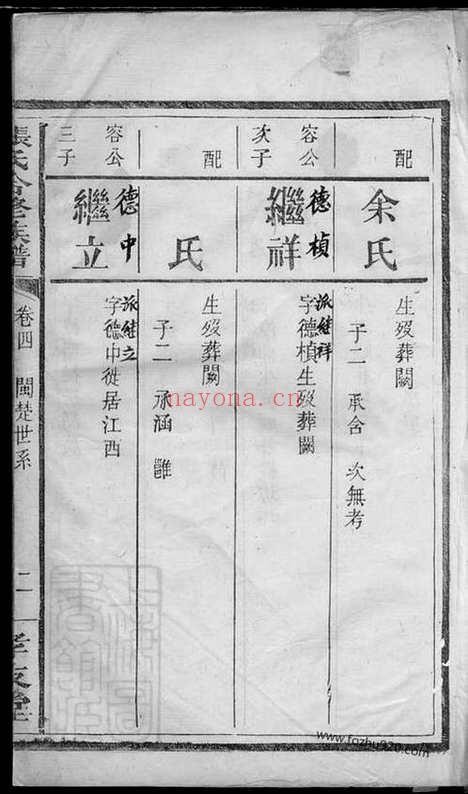 配
余氏
生歿葬闕
子二 承舍 次無考
容公
次子
德楨
繼祥
派繼祥
字德楨生歿葬闕
配
氏
生歿葬闕
子二 承涵 讎
容公
三子
德中
繼立
派繼立
字德中徙居江西
張氏合修族譜
卷四 閩楚世系
二
孝友堂
nayona.cn
www.fozhu920.com